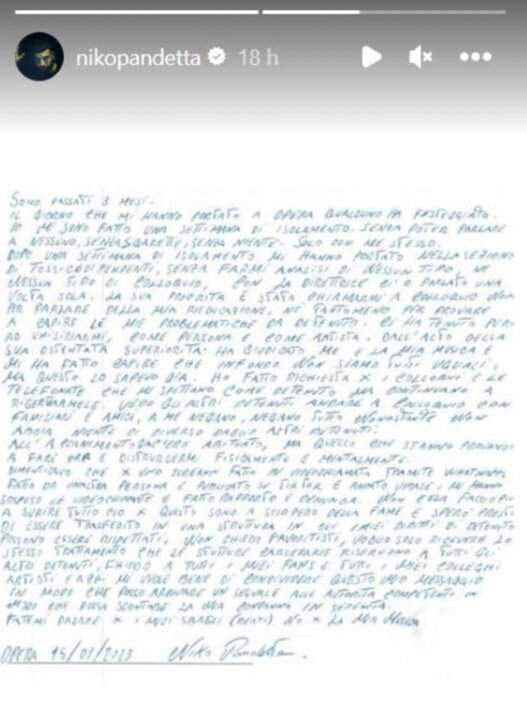 nikopandetta 18 h
SONO PASSATI 3 MESI.
IL GIORNO CHE MI HANNO PORTATO A OPERA QUALCUNO HA FESTEGGIATO.
IO MI SONO FATTO UNA SETTIMANA DI ISOLAMENTO. SENZA POTER PARLARE
A NESSUNO, SENZA SIGARETTE, SENZA NIENTE. SOLO CON ME STESSO.
DOPO UNA SETTIMANA DI ISOLAMENTO MI HANNO PORTATO NELLA SEZIONE
DI TOSSICODIPENDENTI, SENZA FARMI ANALISI DI NESSUN TIPO, NE
NESSUN TIPO DI COLLOQUIO, CON LA DIRETTRICE CI HO PARLATO UNA
VOLTA SOLA. LA SUA PRIORITÀ È STATA CHIAMARMI A COLLOQUIO NON
PER PARLARE DELLA MIA RIEDUCAZIONE, NE TANTOMENO PER PROVARE
A CAPIRE LE MIE PROBLEMATICHE DA DETENUTO. CI HA TENUTO PERÒ
AD UMILIARMI, COME PERSONA E COME ARTISTA. DALL'ALTO DELLA
SUA OSTENTATA SUPERIORITÀ HA GIUDICATO ME E LA MIA MUSICA E
MI HA FATTO CAPIRE CHE INFONDO NON SIAMO TUTTI UGUALI,
MA QUESTO LO SAPEVO GIÀ. HO FATTO RICHIESTA X I COLLOQUI E LE
TELEFONATE CHE MI SPETTANO COME DETENUTO MA CONTINUANO A
RIGETTARMELE. VEDO GLI ALTRI DETENUTI ANDARE A COLLOQUIO CON
FAMILIARI E AMICI, A ME NEGANO, NEGANO TUTTO NONOSTANTE NON
ABBIA NIENTE DI DIVERSO DAGLI ALTRI DETENUTI.
ALL'ACCANIMENTO ABITUATO, MA QUELLO CHE STANNO PROVANDO
A FARE ORA È DISTRUGGERMI FISICAMENTE E MENTALMENTE.
DICIAMO CHE X UNO SCREEN FATTO IN VIDEOCHIAMATA TRAMITE WHATSAPP
FATTO DA UN'ALTRA PERSONA E PUBLICATO SU TIKTOK È ANDATO VIRALE, MI HANNO
SOSPESO LE VIDEOCHIAMATE E FATTO RAPPORTO E DENUNCIA. NON CE LA FACCIO PIÙ
A SUBIRE TUTTO CIÒ X QUESTO SONO A SCIOPERO DELLA FAME E SPERO PRESTO
DI ESSERE TRASFERITO IN UNA STRUTTURA IN CUI I MIEI DIRITTI DI DETENUTO
POSSONO ESSERE RISPETTATI, NON CHIEDO FAVORITISMI, VOGLIO SOLO RICEVERE LO
STESSO TRATTAMENTO CHE LE STRUTTURE CARCERARIE RISERVONO A TUTTI GLI
ALTRI DETENUTI, CHIEDO A TUTTI I MIEI FANS E TUTTI I MIEI COLLEGHI
ARTISTI E A CHI MI VUOLE BENE DI CONDIVIDERE QUESTO MIO MESSAGGIO
IN MODO CHE POSSA ARRIVARE UN SEGNALE ALLE AUTORITÀ COMPETENTI IN
MODO CHE POSSA SCONTARE LA MIA CONDANNA IN SERENITÀ.
FATEMI PAGARE X I MIEI SBAGLI (REATI) NO X LA MIA MUSICA
OPERA 15/01/2023 Niko Pandetta.